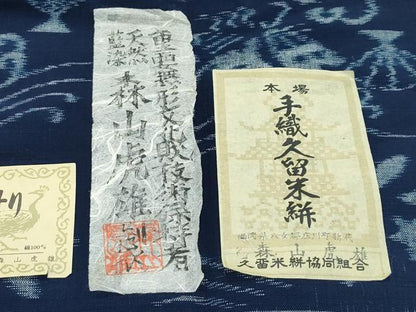 り
綿100%
森山虎雄
重要無形文化財技術保持者
手織
藍染
森山虎雄
本場
手織久留米絣
森山虎雄
久留米絣協同組合